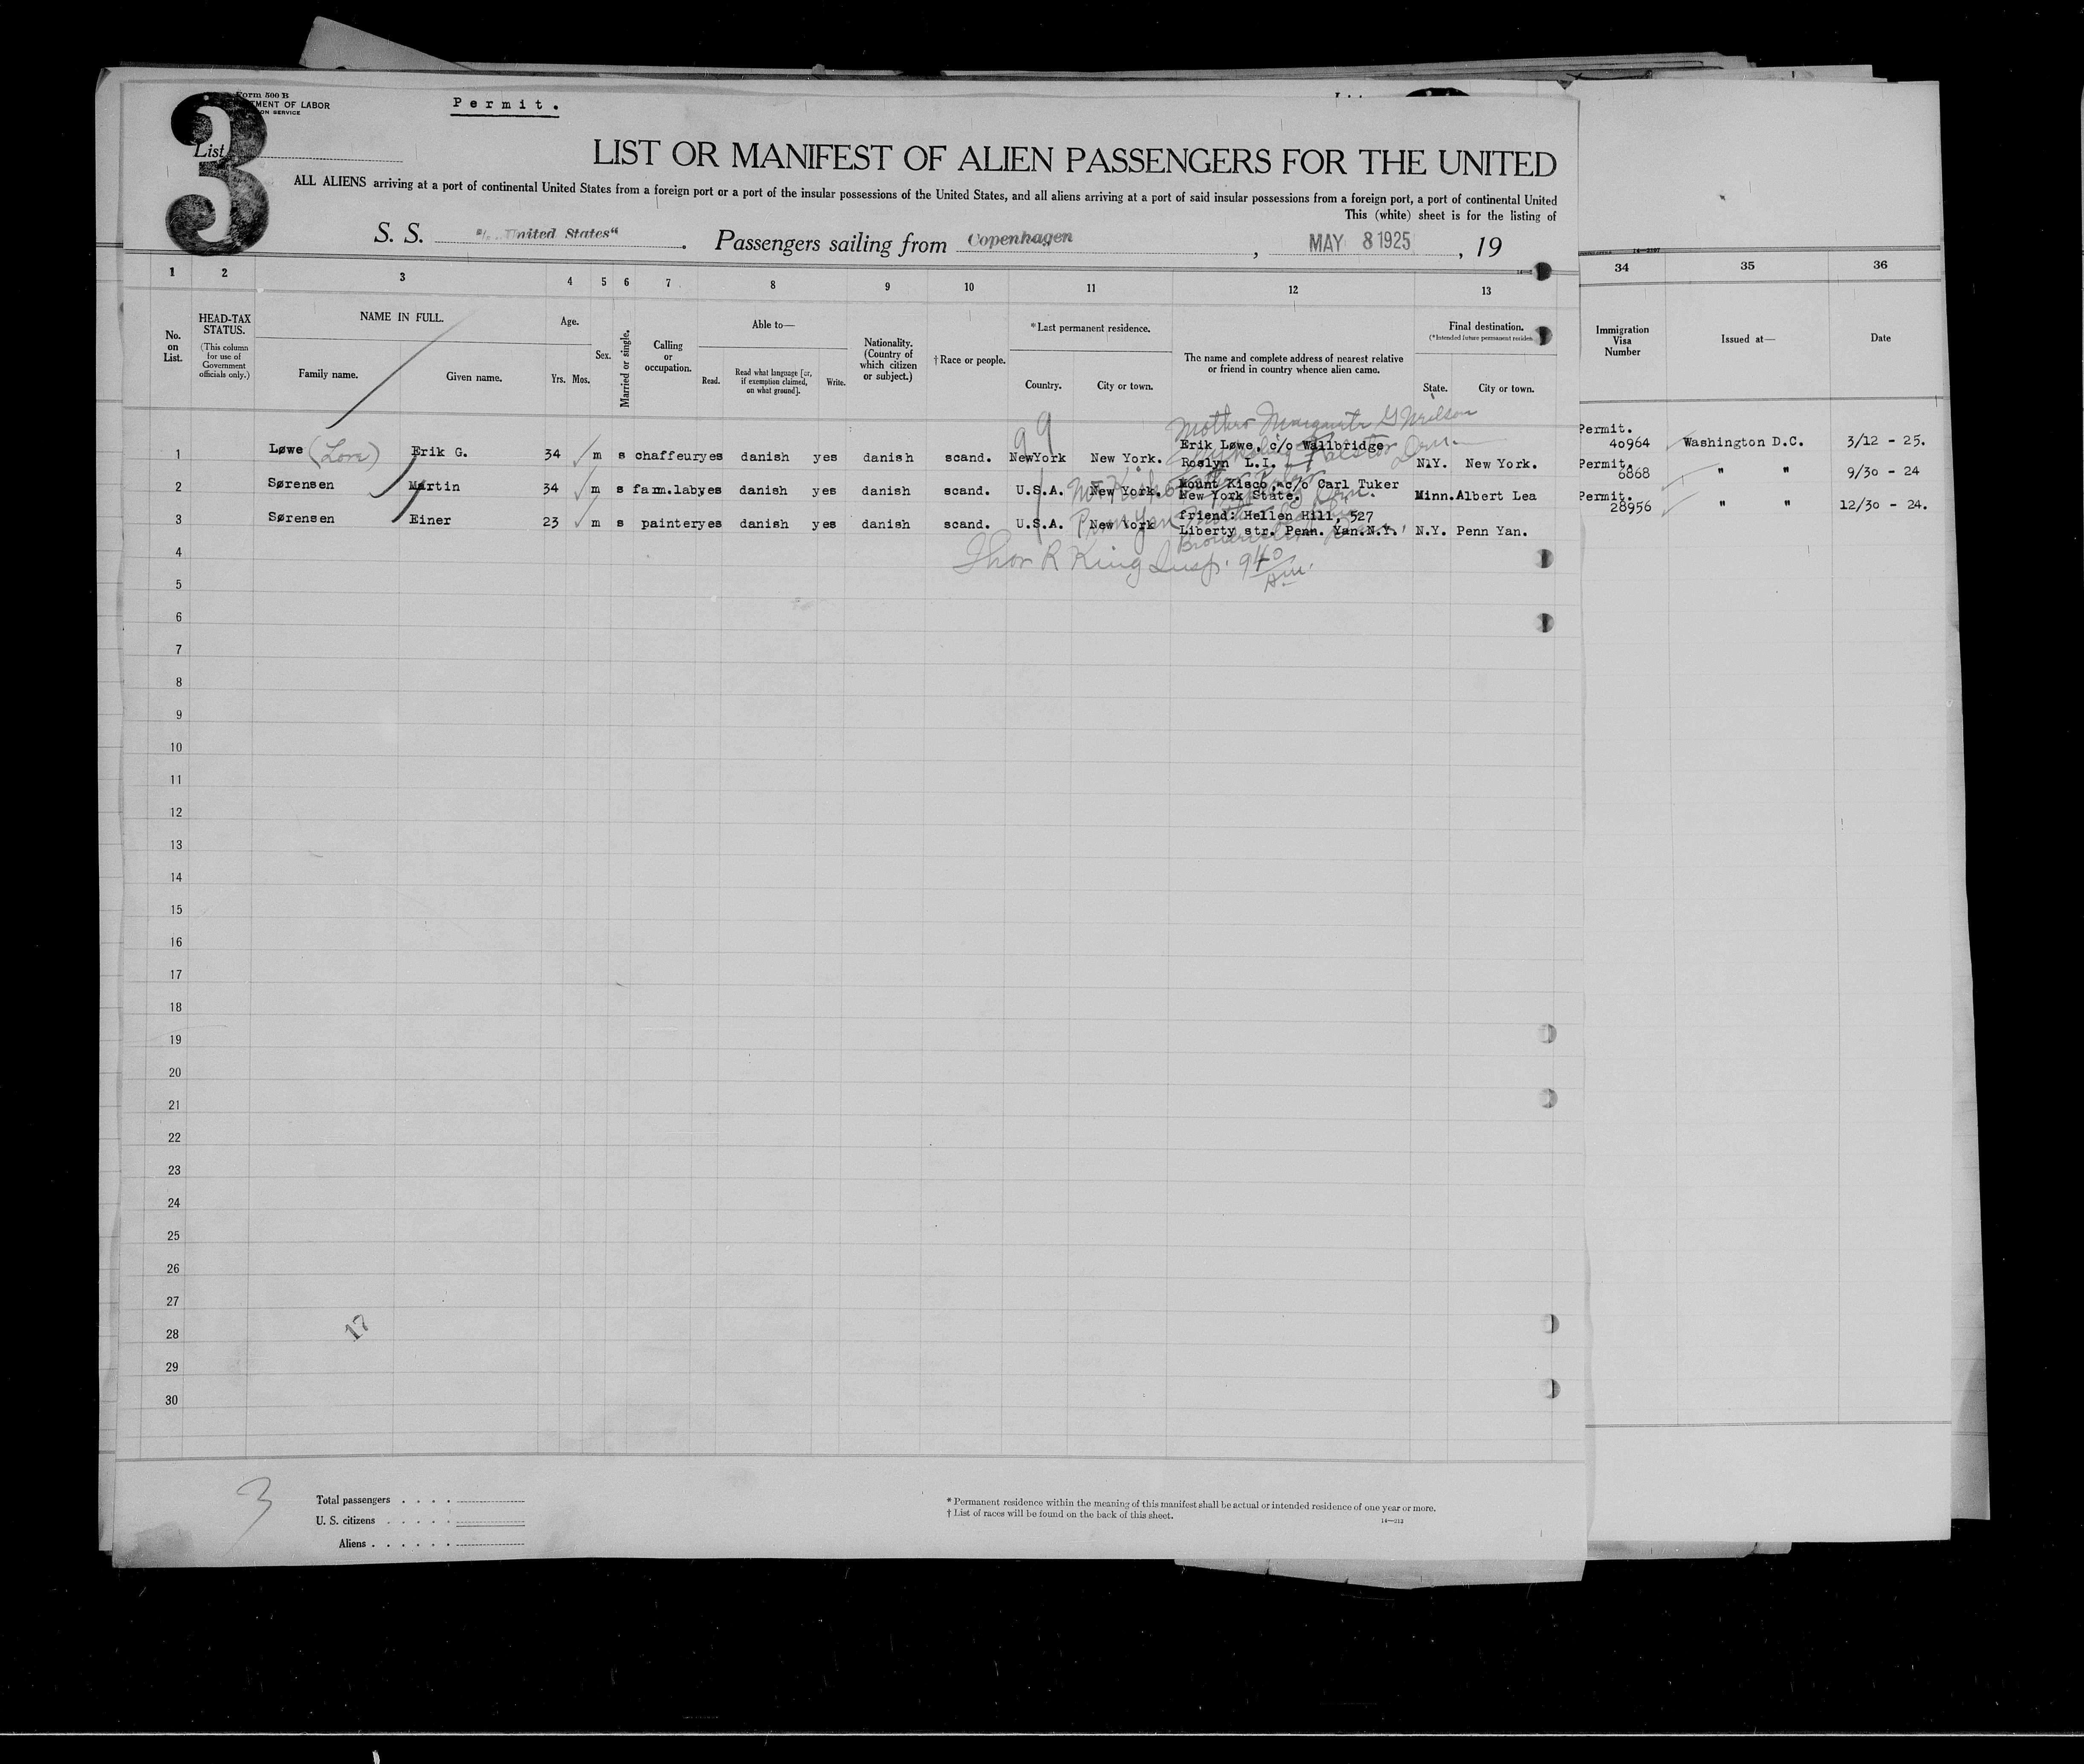 Form 500 B
MENT OF LABOR
ON SERVICE
Permit.
3
List
LIST OR MANIFEST OF ALIEN PASSENGERS FOR THE UNITED
ALL ALIENS arriving at a port of continental United States from a foreign port or a port of the insular possessions of the United States, and all aliens arriving at a port of said insular possessions from a foreign port, a port of continental United
This (white) sheet is for the listing of
S. S. United States" . Passengers sailing from Copenhagen , MAY 8 1925 , 19
1 2 3 4 5 6 7 8 9 10 11 12 13 34 35 36
No. on List.
HEAD-TAX STATUS.
(This column for use of Government officials only.)
NAME IN FULL.
Family name. Given name.
Age.
Yrs. Mos.
Sex.
Married or single.
Calling or occupation.
Able to—
Read. Read what language [or, if exemption claimed, on what ground]. Write.
Nationality. (Country of which citizen or subject.)
† Race or people.
*Last permanent residence.
Country. City or town.
The name and complete address of nearest relative or friend in country whence alien came.
Final destination.
(*Intended future permanent residen
State. City or town.
Immigration Visa Number
Issued at—
Date
99
Mother
Permit.
1 Løwe (Love) Erik G. 34 m s chaffeur yes danish yes danish scand. NewYork New York. Erik Løwe, c/o Wallbridge Roslyn L.I. N.Y. New York. 40964 Washington D.C. 3/12 - 25.
Permit.
2 Sørensen Martin 34 m s farm.lab yes danish yes danish scand. U.S.A. New York. Mount Kisco c/o Carl Tuker New York State. Minn. Albert Lea 6868 " " 9/30 - 24
Permit.
3 Sørensen Einer 23 m s painter yes danish yes danish scand. U.S.A. New York friend: Hellen Hill, 527 Liberty str. Penn. Yan.N.Y. N.Y. Penn Yan. 28956 " " 12/30 - 24.
4
Thor R King Insp. 9 40 Am.
5
6
7
8
9
10
11
12
13
14
15
16
17
18
19
20
21
22
23
24
25
26
27
17
28
29
30
3
Total passengers
U. S. citizens
Aliens
* Permanent residence within the meaning of this manifest shall be actual or intended residence of one year or more.
† List of races will be found on the back of this sheet.